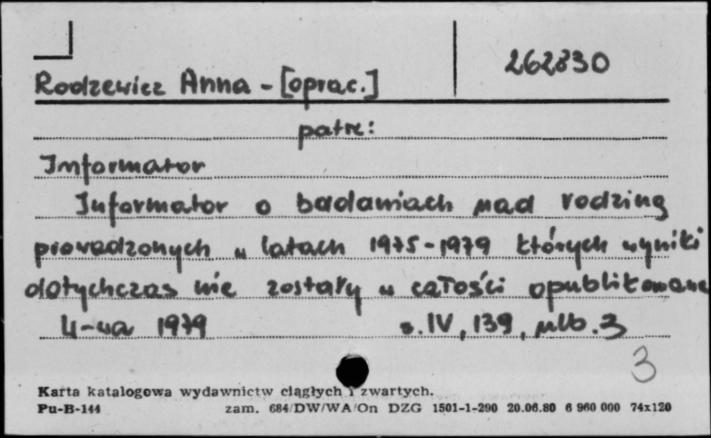 262830
Rodzewicz Anna - [oprac.]
patrz:
Informator
Informator o badaniach nad rodziną
prowadzonych w latach 1975-1979 których wyniki
dotychczas nie zostały w całości opublikowane
W-wa 1979 s. IV, 139, nlb. 3
3
Karta katalogowa wydawnictw ciągłych i zwartych.
Pu-B-144 zam. 684/DW/WA/On DZG 1501-1-290 20.06.80 6 960 000 74x120